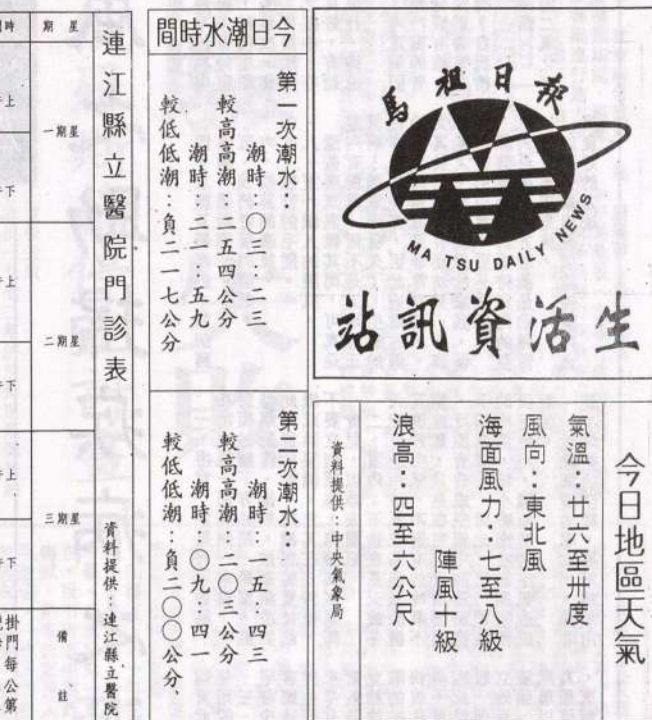 馬祖日報
MA TSU DAILY NEWS
生活資訊站
今日地區天氣
氣溫：廿六至卅度
風向：東北風
海面風力：七至八級
陣風十級
浪高：四至六公尺
資料提供：中央氣象局
今日潮水時間
第一次潮水：
潮時：〇三：二三
較高高潮：二五四公分
潮時：二一：五九
較低低潮：負二一七公分
第二次潮水：
潮時：一五：四三
較高高潮：二〇三公分
潮時：〇九：四一
較低低潮：負二〇〇公分、
連江縣立醫院門診表
資料提供：連江縣立醫院
星期
星期一
星期二
星期三
備註
時
上
下
上
下
上
下
掛
門每
公第